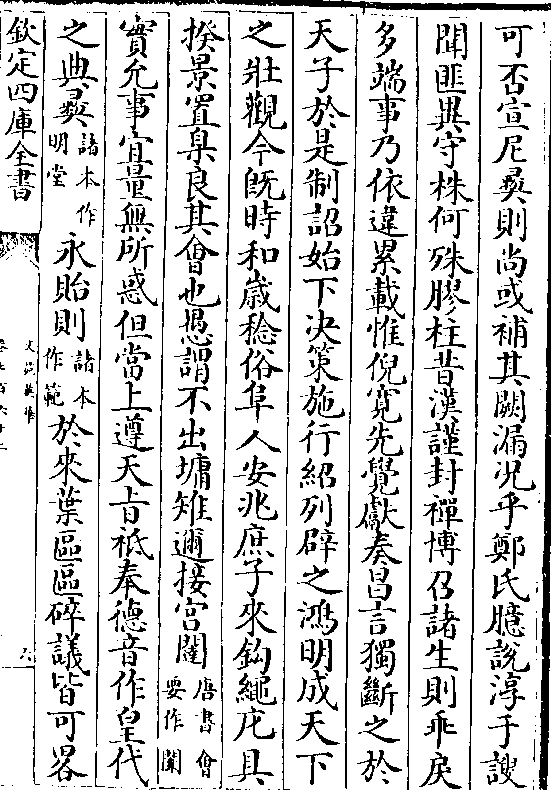 可否宣尼彞則尚或補其闕漏况乎鄭氏臆説淳于謏
聞匪異守株何殊膠柱昔漢謹封禪博召諸生則乖戾
多端事乃依違累載惟倪寛先覺獻奏昌言獨斷之於
天子於是制詔始下决策施行紹列辟之鴻明成天下
之壯觀今旣時和嵗稔俗阜人安兆庶子來鈎繩庀具
揆景置臬良其會也愚謂不出墉雉邇接宮闈唐書會要作闈
實允事宜量無所惑但當上遵天旨祗奉德音作皇代
之典彞諸本作明堂永貽則諸本作範於來葉區區碎議皆可畧
欽定四庫全書